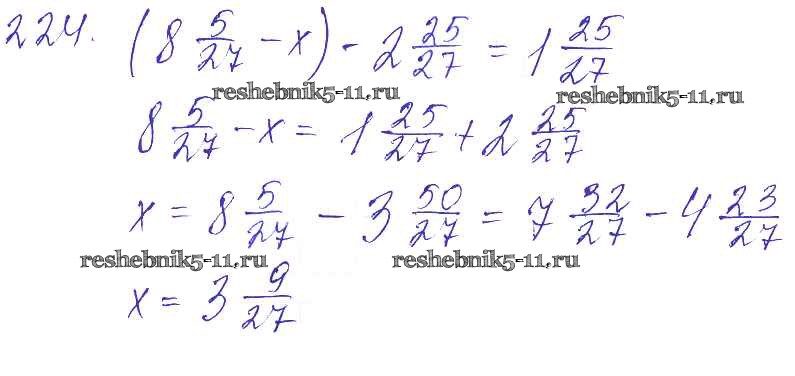 224. (8 5/27 - x) - 2 25/27 = 1 25/27
reshebnik5-11.ru reshebnik5-11.ru
8 5/27 - x = 1 25/27 + 2 25/27
x = 8 5/27 - 3 50/27 = 7 32/27 - 4 23/27
reshebnik5-11.ru reshebnik5-11.ru
x = 3 9/27